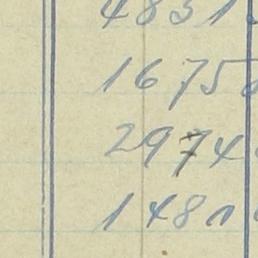 4831
1675
2974
1481